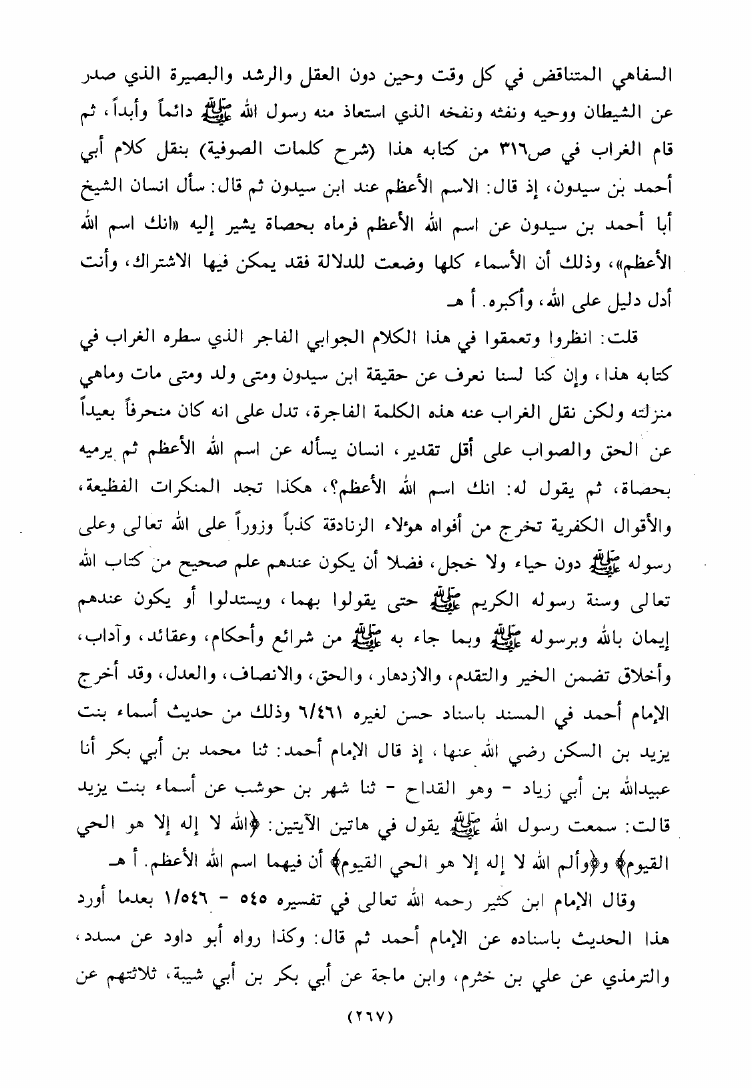 السفاهي المتناقض في كل وقت وحين دون العقل والرشد والبصيرة الذي صدر
عن الشيطان ووحيه ونفثه ونفخه الذي استعاذ منه رسول الله ﷺ دائماً وأبداً، ثم
قام الغراب في ص٣١٦ من كتابه هذا (شرح كلمات الصوفية) بنقل كلام أبي
أحمد بن سيدون، إذ قال: الاسم الأعظم عند ابن سيدون ثم قال: سأل انسان الشيخ
أبا أحمد بن سيدون عن اسم الله الأعظم فرماه بحصاة يشير إليه «انك اسم الله
الأعظم»، وذلك أن الأسماء كلها وضعت للدلالة فقد يمكن فيها الاشتراك، وأنت
أدل دليل على الله، وأكبره. أ هـ
قلت: انظروا وتعمقوا في هذا الكلام الجوابي الفاجر الذي سطره الغراب في
كتابه هذا، وإن كنا لسنا نعرف عن حقيقة ابن سيدون ومتى ولد ومتى مات وماهي
منزلته ولكن نقل الغراب عنه هذه الكلمة الفاجرة، تدل على انه كان منحرفاً بعيداً
عن الحق والصواب على أقل تقدير، انسان يسأله عن اسم الله الأعظم ثم يرميه
بحصاة، ثم يقول له: انك اسم الله الأعظم؟، هكذا تجد المنكرات الفظيعة،
والأقوال الكفرية تخرج من أفواه هؤلاء الزنادقة كذباً وزوراً على الله تعالى وعلى
رسوله ﷺ دون حياء ولا خجل، فضلا أن يكون عندهم علم صحيح من كتاب الله
تعالى وسنة رسوله الكريم ﷺ حتى يقولوا بهما، ويستدلوا أو يكون عندهم
إيمان بالله وبرسوله ﷺ وبما جاء به ﷺ من شرائع وأحكام، وعقائد، وآداب،
وأخلاق تضمن الخير والتقدم، والازدهار، والحق، والانصاف، والعدل، وقد أخرج
الإمام أحمد في المسند باسناد حسن لغيره ٦/٤٦١ وذلك من حديث أسماء بنت
يزيد بن السكن رضي الله عنها، إذ قال الإمام أحمد: ثنا محمد بن أبي بكر أنا
عبيدالله بن أبي زياد - وهو القداح - ثنا شهر بن حوشب عن أسماء بنت يزيد
قالت: سمعت رسول الله ﷺ يقول في هاتين الآيتين: ﴿الله لا إله إلا هو الحي
القيوم﴾ و﴿وألم الله لا إله إلا هو الحي القيوم﴾ أن فيهما اسم الله الأعظم. أ هـ
وقال الإمام ابن كثير رحمه الله تعالى في تفسيره ٥٤٥ - ١/٥٤٦ بعدما أورد
هذا الحديث باسناده عن الإمام أحمد ثم قال: وكذا رواه أبو داود عن مسدد،
والترمذي عن علي بن خثرم، وابن ماجة عن أبي بكر بن أبي شيبة، ثلاثتهم عن
(٢٦٧)